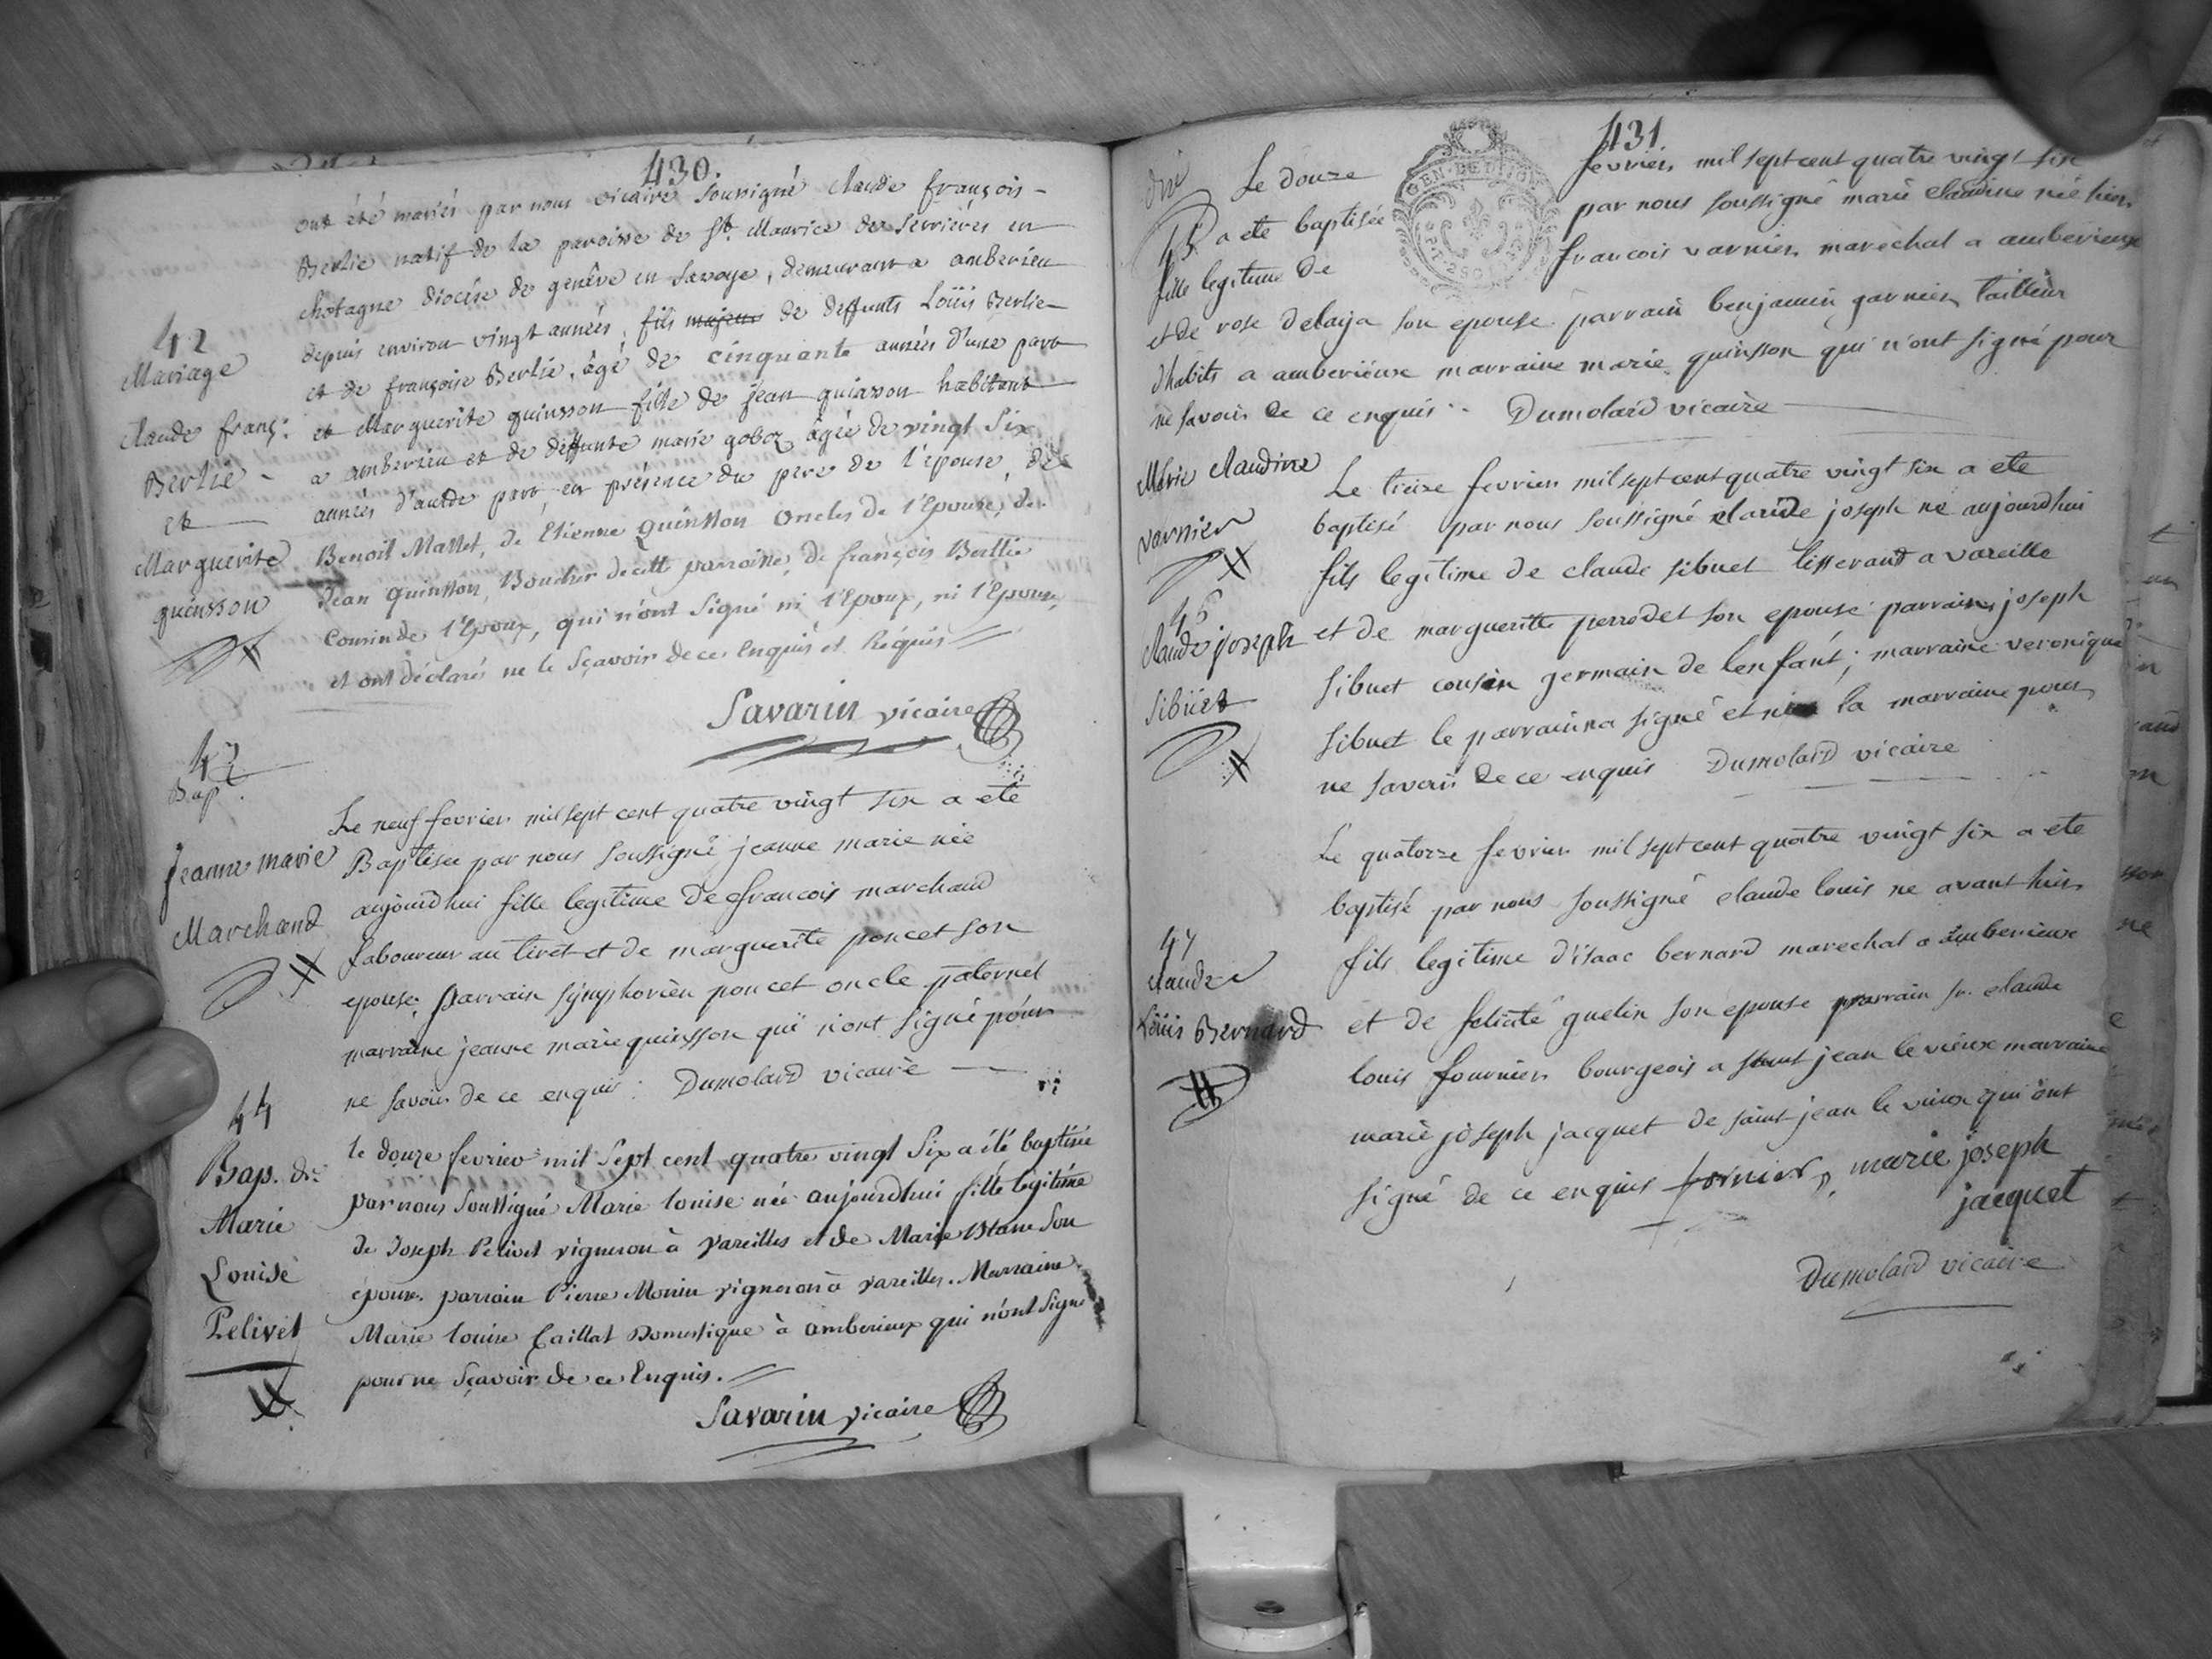 430.
ont été mariés par nous vicaire soussigné Claude françois -
Berlie natif de la paroisse de St. Maurice de Serrières en
Chotagne diocése de genêve en Savoye, demeurant a amberieu
depuis environ vingt années, fils majeur de deffunts Loüis Berlie
et de françoise Berlie, âgé de cinquante années d'une part
et Marguerite quinsson fille de jean quinsson habitant
a amberieu et de deffunte marie goboz âgée de vingt Six
années d'autre part, en présence du pere de l'épouse, de
Benoit Mallet, de Etienne Quinsson oncles de l'Epouse, de
Jean Quinsson, Boucher de cette parroisse, de françois Berllie
Cousin de l'Epoux, qui n'ont Signé ni l'Epoux, ni l'Epouse,
et ont déclarés ne le Sçavoir de ce Enquis et Réquis
Savarin vicaire
42
Mariage
Claude franç:
Berlie -
et
Marguerite
quinsson
43
Bap
Jeanne marie
Marchand
Le neuf fevrier mil sept cent quatre vingt six a eté
Baptisée par nous soussigné jeanne marie née
aujourdhui fille legitime de francois marchand
laboureur au tiret et de marguerite poncet son
epouse; parrain symphorien poncet oncle paternel
marraine jeanne marie quinsson qui n'ont signé pour
ne savoir de ce enquis: Dumolard vicaire
44
Bap. de
Marie
Louise
Pelivet
le douze fevrier mil Sept cent quatre vingt Six a été baptisée
par nous Soussigné Marie louise née aujourdhui fille legitime
de Joseph Pelivet vigneron à Vareilles et de Marie Blanc Son
épouse. parrain Pierre Monin vigneron à vareilles. Marraine
Marie louise Caillat Domestique à amberieux qui n'ont Signé
pour ne Sçavoir de ce Enquis.
Savarin vicaire
431
GEN. DE DIJON
Le douze fevrier mil sept cent quatre vingt six
45 a ete baptisée par nous soussigné marie claudine née hier
fille legitime de francois varnier marechal a amberieux
et de rose delaija son epouse parrain benjamin garnier tailleur
d'habits a amberieux marraine marie quinsson qui n'ont signé pour
ne savoir de ce enquis. Dumolard vicaire
Marie Claudine
varnier
Le treise fevrier mil sept cent quatre vingt six a ete
baptisé par nous soussigné claude joseph né aujourdhui
fils legitime de claude sibuet tisserand a vareille
et de marguerite perrodet son epouse parrain joseph
sibuet cousin germain de lenfant; marraine veronique
sibuet le parrain a signé et non la marraine pour
ne savoir de ce enquis Dumolard vicaire
46
Claude joseph
Sibüet
Le quatorze fevrier mil sept cent quatre vingt six a ete
baptisé par nous soussigné claude louis ne avant hier
fils legitime d'isaac bernard marechal a amberieux
et de felicité guelin son epouse parrain sr. claude
louis fournier bourgeois a saint jean le vieux marraine
marie joseph jacquet de saint jean le vieux qui ont
signé de ce enquis fornier, marie joseph
jacquet
Dumolard vicaire
47
Claude
Loüis Bernard